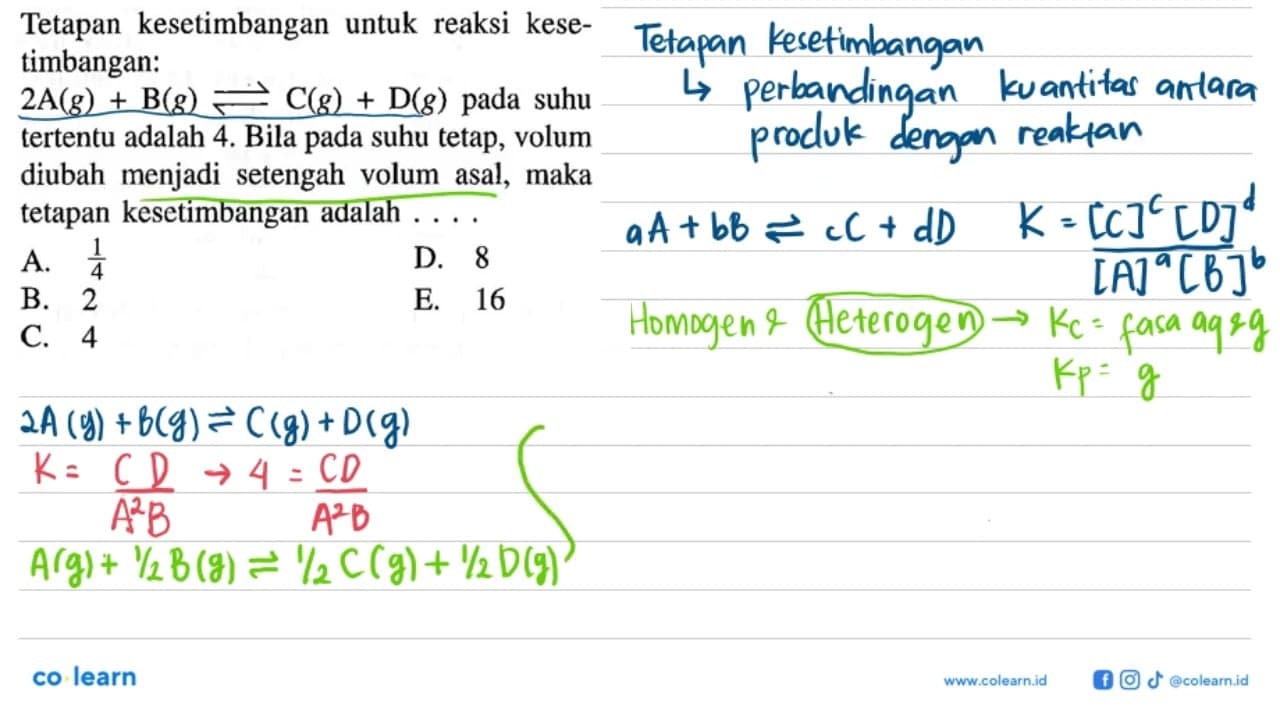 Tetapan kesetimbangan untuk reaksi kese-
timbangan:
2A(g) + B(g) ⇌ C(g) + D(g) pada suhu
tertentu adalah 4. Bila pada suhu tetap, volum
diubah menjadi setengah volum asal, maka
tetapan kesetimbangan adalah . . . .
A. 1/4
B. 2
C. 4
D. 8
E. 16
Tetapan kesetimbangan
↳ perbandingan kuantitas antara
produk dengan reaktan
aA + bB ⇌ cC + dD K = [C]^c [D]^d / [A]^a [B]^b
Homogen & Heterogen → Kc = fasa aq & g
Kp = g
2A (g) + B(g) ⇌ C(g) + D(g)
K = C D / A²B → 4 = CD / A²B
A(g) + 1/2 B(g) ⇌ 1/2 C(g) + 1/2 D(g)
co learn
www.colearn.id
@colearn.id